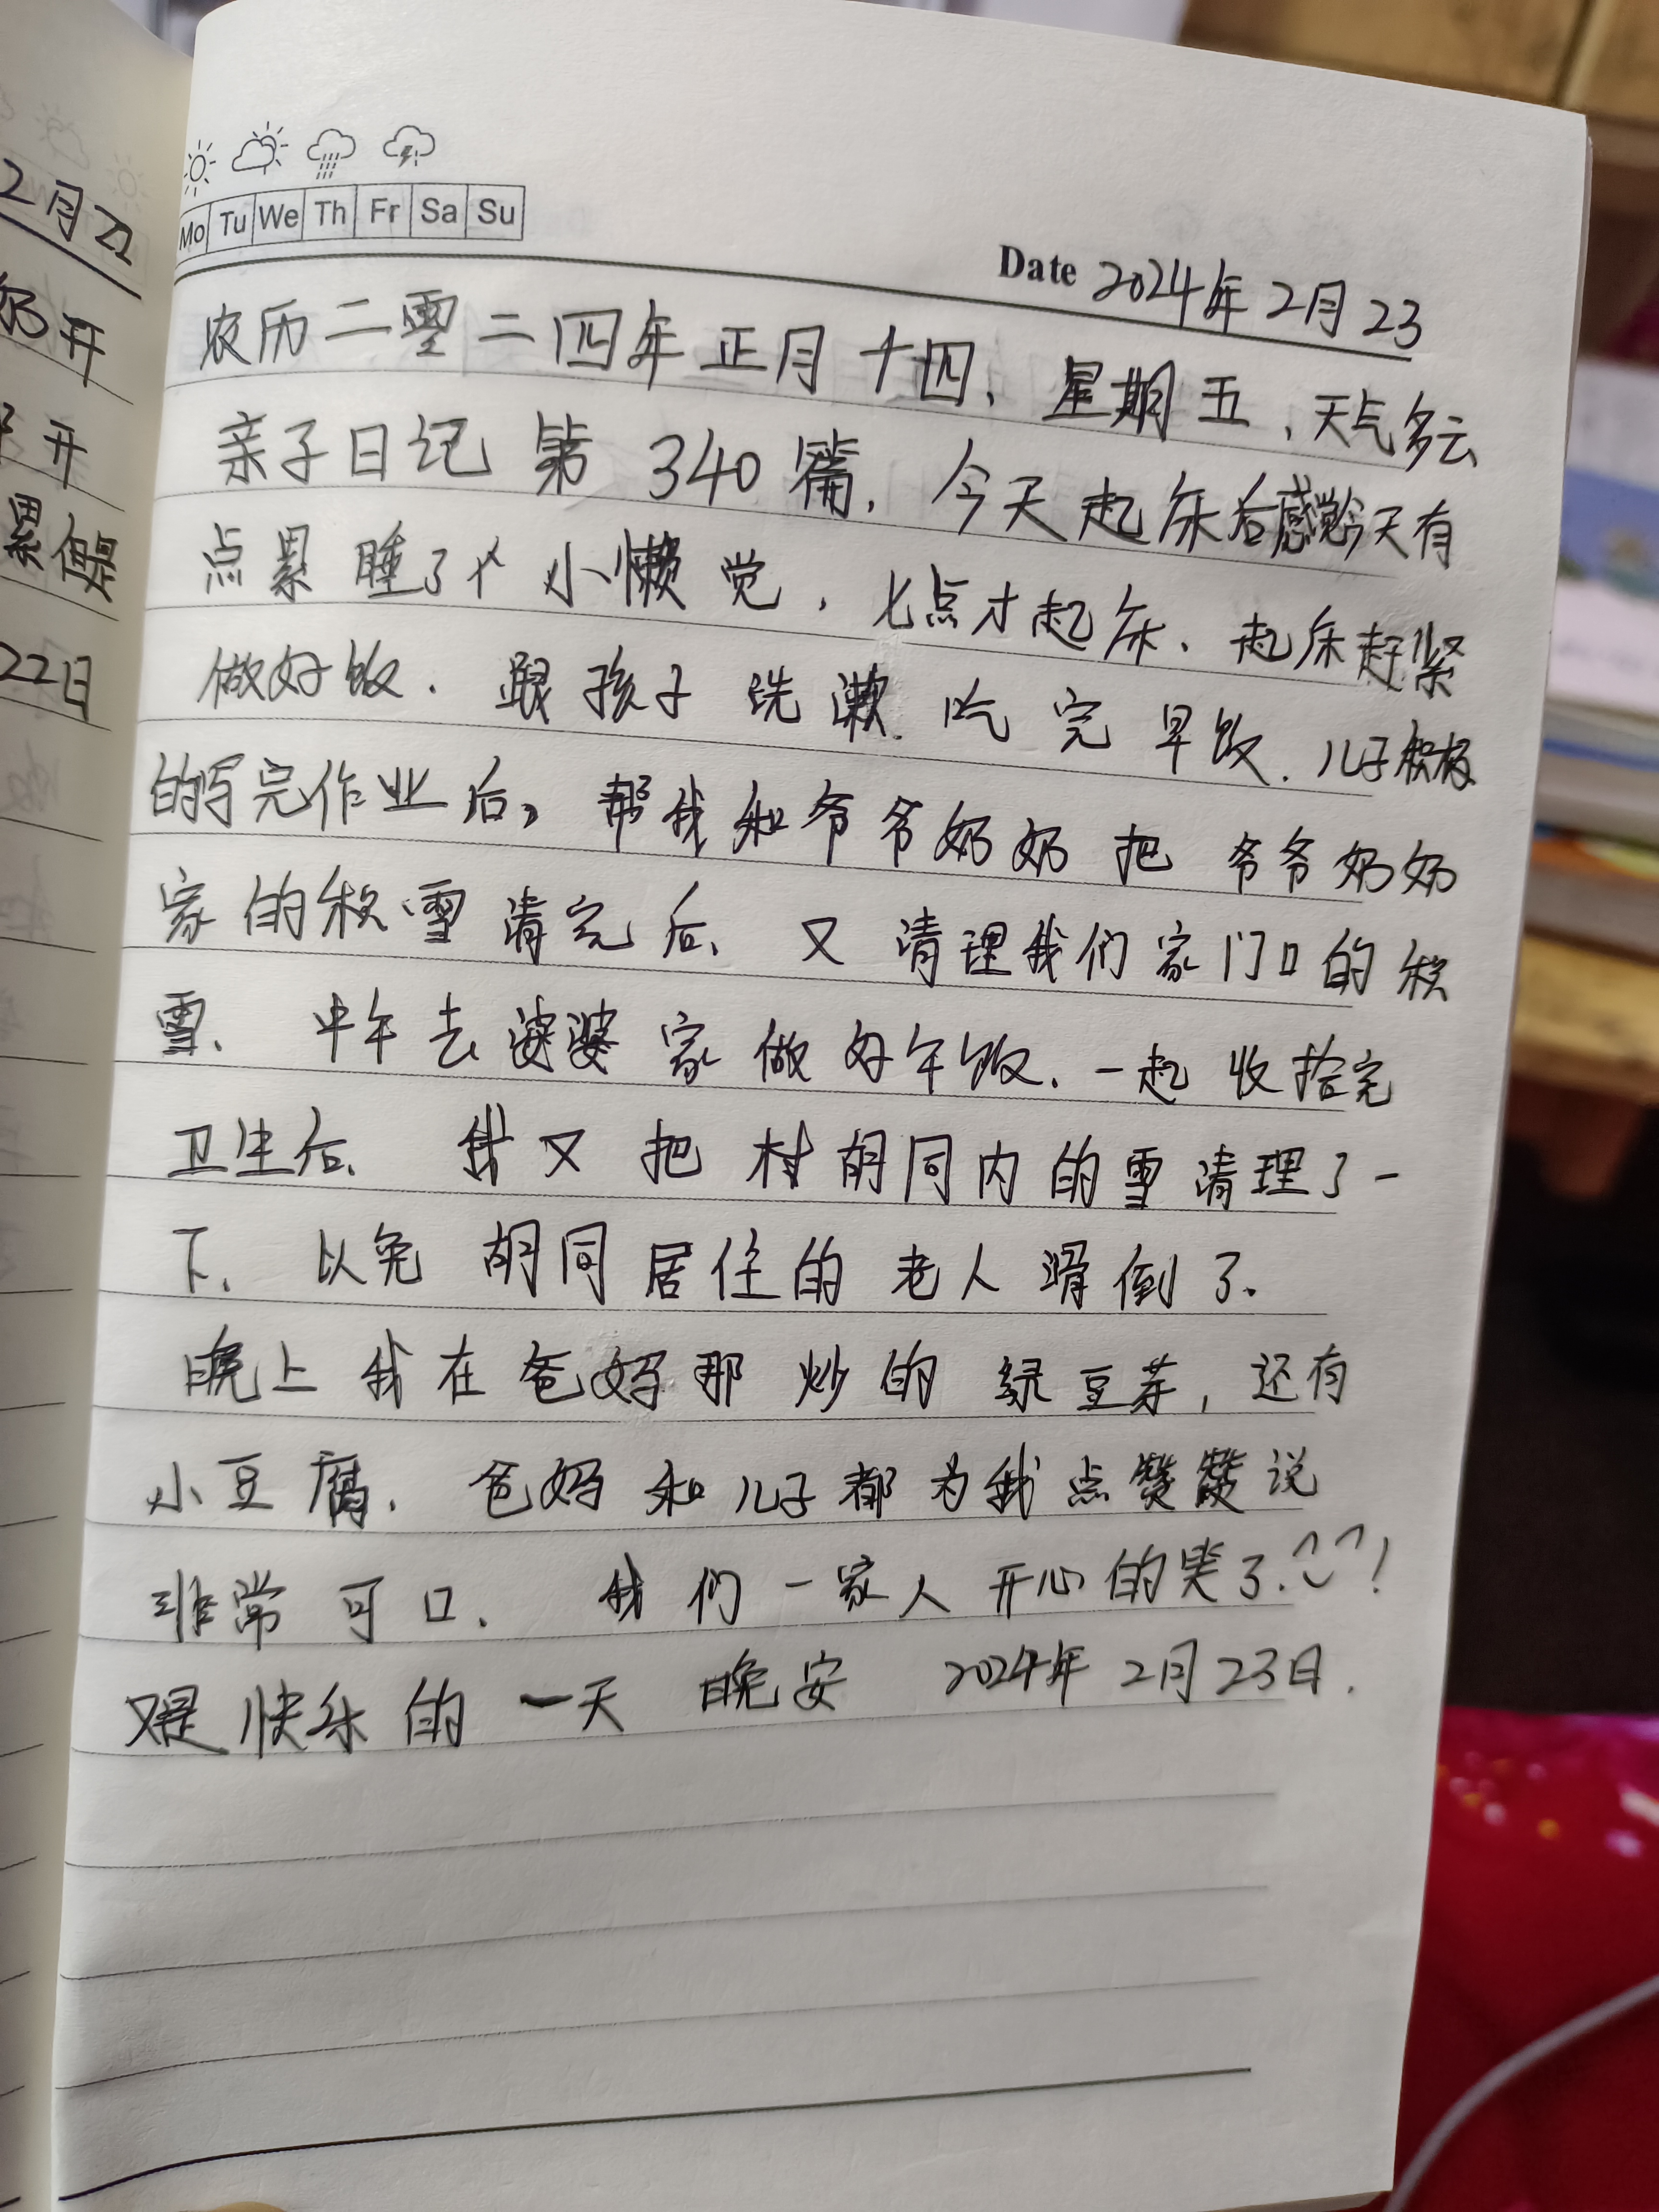 2月22
奶开
开
累但是
22日
Mo Tu We Th Fr Sa Su
Date 2024年2月23
农历二零二四年正月十四、星期五、天气多云
亲子日记第340篇.今天起床后感觉今天有
点累睡了个小懒觉,七点才起床、起床赶紧
做好饭.跟孩子洗漱.吃完早饭.儿子积极
的写完作业后,帮我和爷爷奶奶把爷爷奶奶
家的积雪清完后、又清理我们家门口的积
雪、中午去婆婆家做好午饭.一起收拾完
卫生后、我又把村胡同内的雪清理了一
下、以免胡同居住的老人滑倒了.
晚上我在爸妈那炒的绿豆芽,还有
小豆腐.爸妈和儿子都为我点赞赞说
非常可口.我们一家人开心的笑了.!
又是快乐的一天 晚安 2024年2月23日.